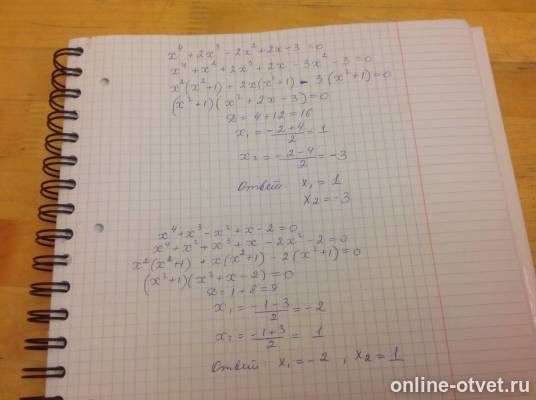 x⁴ + 2x³ - 2x² + 2x - 3 = 0
x⁴ + x² + 2x³ + 2x - 3x² - 3 = 0
x²(x²+1) + 2x(x²+1) - 3(x²+1) = 0
(x²+1)(x² + 2x - 3) = 0
D = 4 + 12 = 16
x₁ = (-2+4)/2 = 1
x₂ = (-2-4)/2 = -3
Ответ: x₁ = 1
x₂ = -3
x⁴ + x³ - x² + x - 2 = 0
x⁴ + x² + x³ + x - 2x² - 2 = 0
x²(x²+1) + x(x²+1) - 2(x²+1) = 0
(x²+1)(x² + x - 2) = 0
D = 1 + 8 = 9
x₁ = (-1-3)/2 = -2
x₂ = (-1+3)/2 = 1
Ответ: x₁ = -2, x₂ = 1
online-otvet.ru